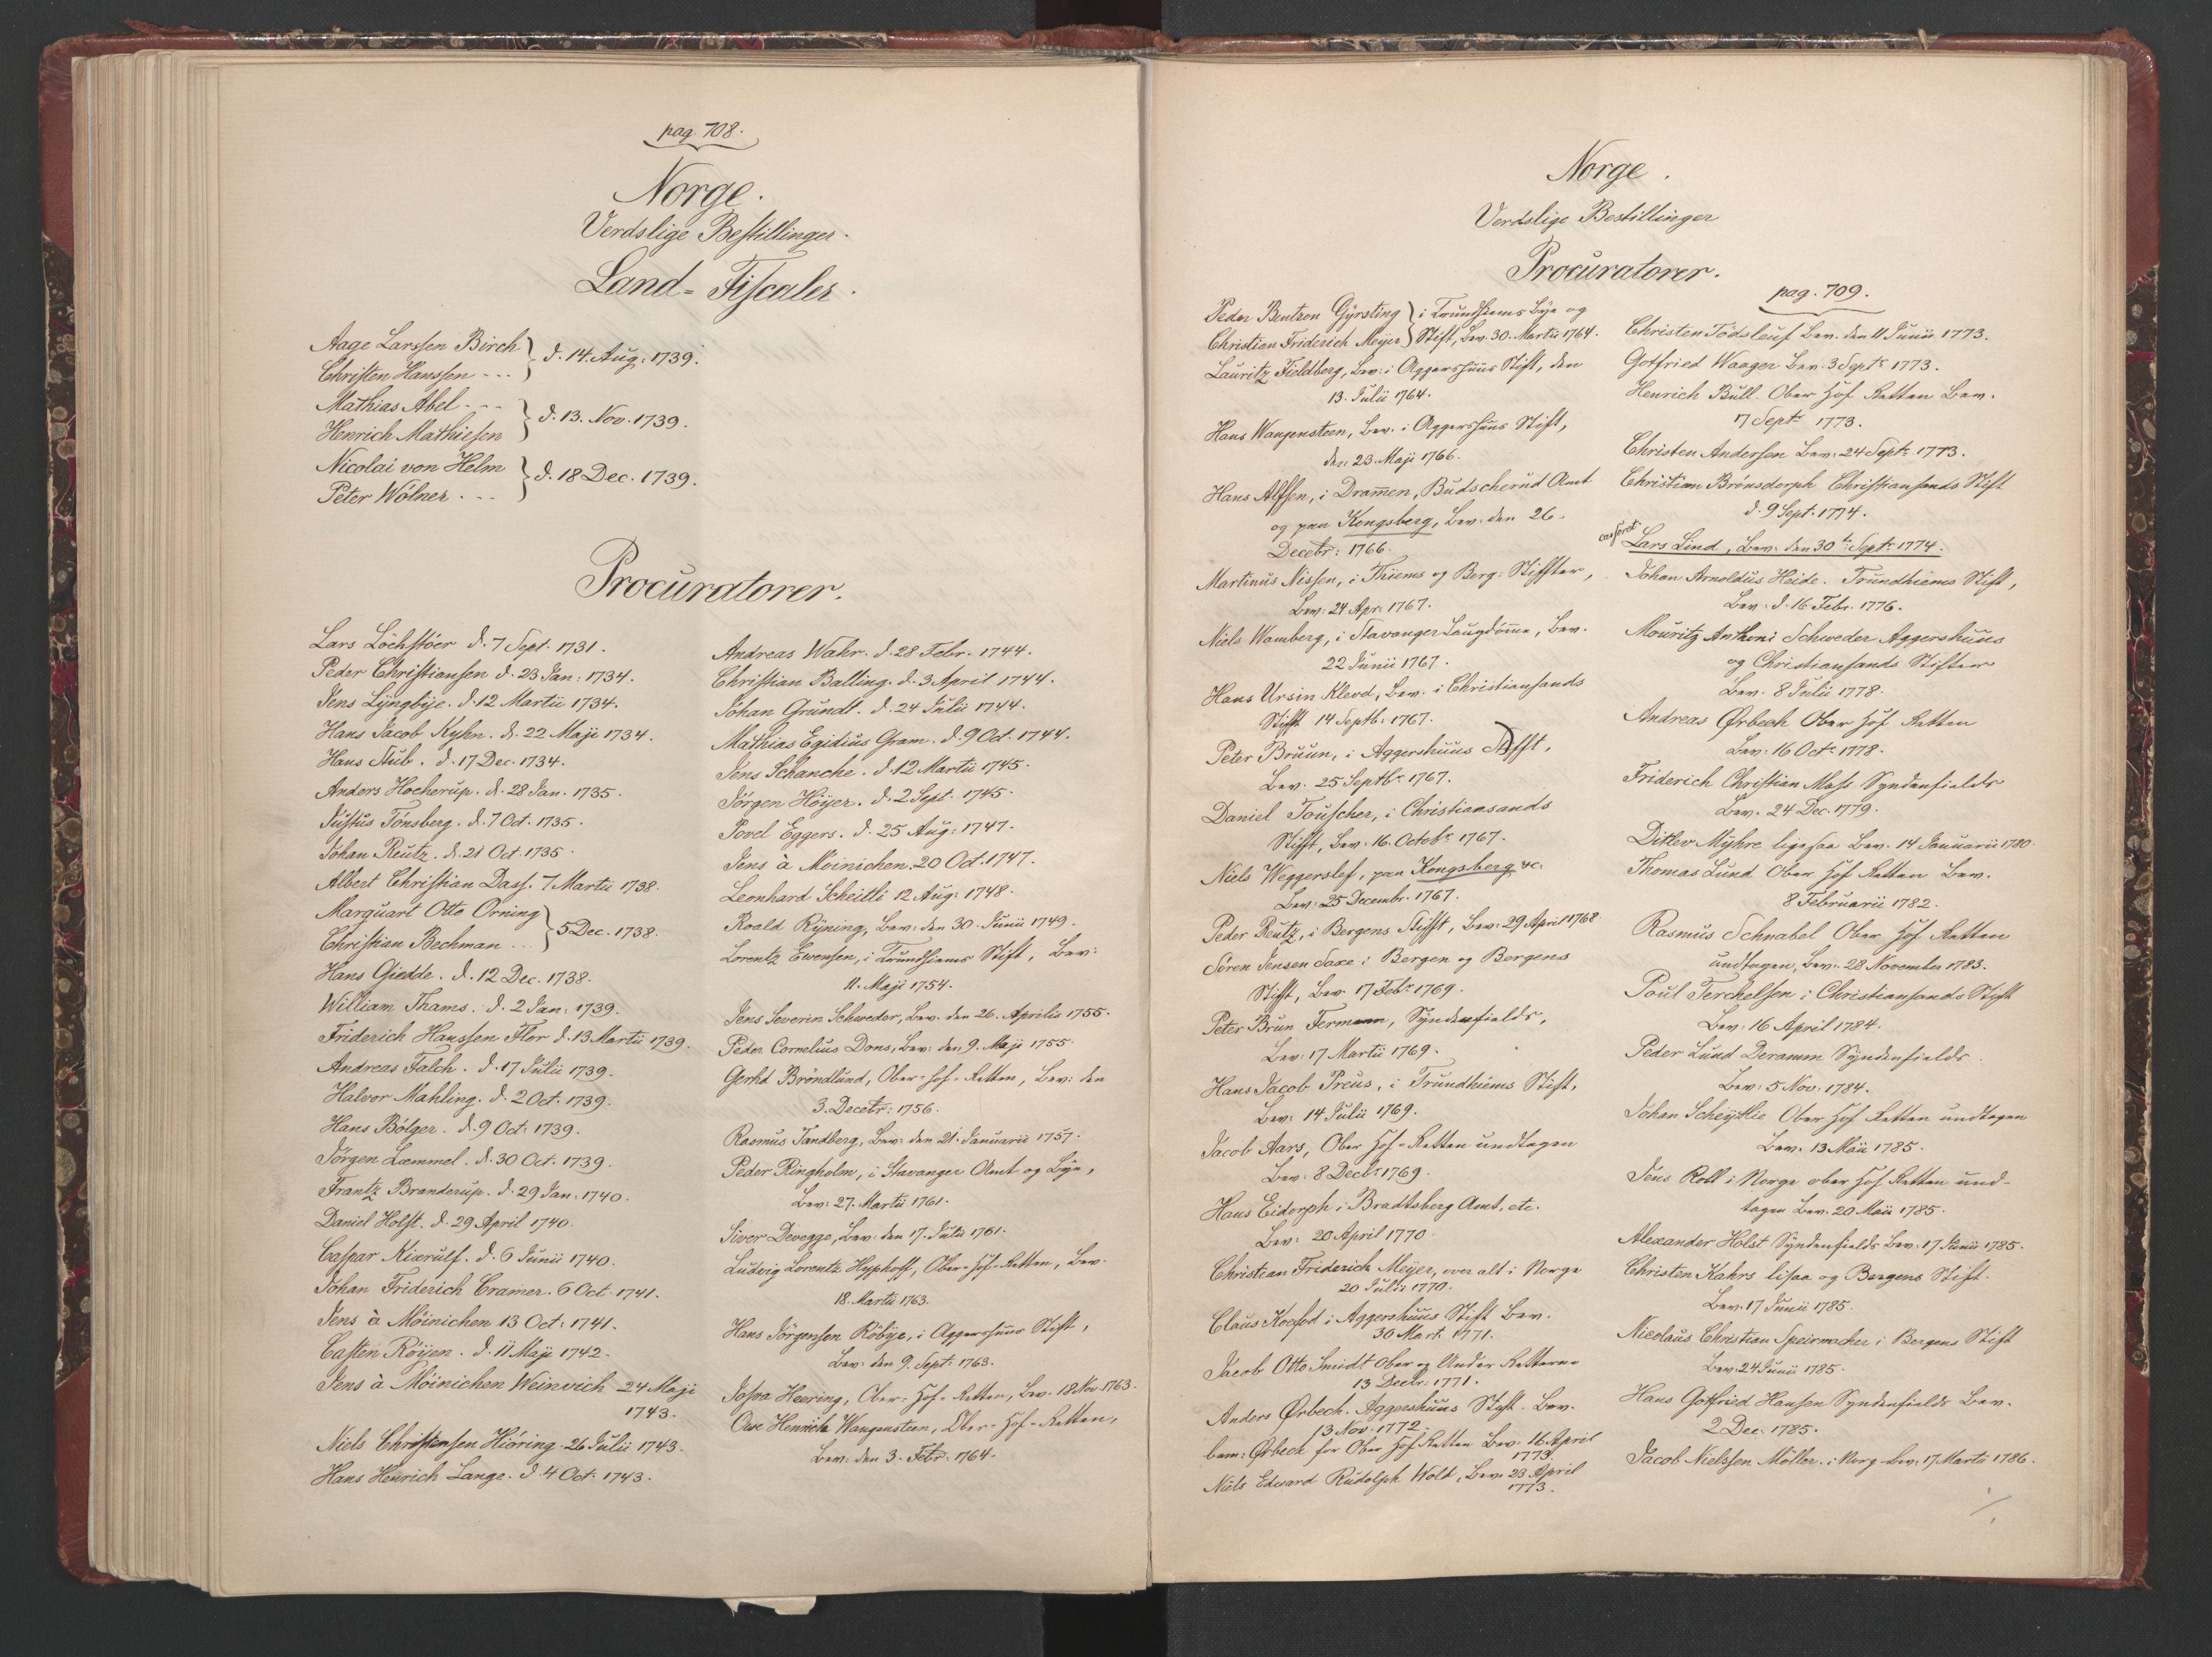 pag. 708.
Norge.
Verdslige Bestillinger.
Land-Fiscaler.
Aage Larssen Birch
Christen Hanssen - - - } d. 14. Aug. 1739.
Mathias Abel - - -
Henrich Mathiesen } d. 13. Nov. 1739.
Nicolai von Helm
Peter Wölner - - - } d. 18 Dec. 1739.
Procuratorer.
Lars Löchstöer d. 7 Sept. 1731.
Peder Christiansen d. 23 Jan: 1734.
Jens Lÿngbÿe. d. 12 Martii 1734.
Hans Jacob Kyhn. d. 22 Maji 1734.
Hans Stub. d. 17 Dec. 1734.
Anders Hocherup. d. 28 Jan. 1735.
Justus Tönsberg. d. 7 Oct. 1735.
Johan Reutz. d. 21 Oct. 1735.
Albert Christian Dass. 7 Martii 1738.
Marquart Otto Orning
Christian Bechman - - } 5 Dec. 1738.
Hans Giedde. d. 12 Dec. 1738.
William Thams. d. 2 Jan: 1739.
Friderich Hanssen Flor d. 13 Martii 1739.
Andreas Falch. d. 17 Julii 1739.
Halvor Mahling. d. 2 Oct. 1739.
Hans Bölger. d. 9 Oct: 1739.
Jörgen Læmmel. d. 30 Oct. 1739.
Frantz Branderup. d. 29 Jan: 1740.
Daniel Holst. d. 29 April 1740.
Caspar Kierulf. d. 6 Junii 1740.
Johan Friderich Cramer. 6 Oct. 1741.
Jens à Möinichen 13 Oct: 1741.
Casten Röijen. d. 11 Maji 1742.
Jens à Möinichen Weinvich 24 Maji
1743.
Niels Christensen Hiöring. 26 Julii 1743.
Hans Henrich Lange. d. 4 Oct: 1743.
Andreas Wahr. d. 28 Febr. 1744.
Christian Balling. d. 3 April 1744.
Johan Grundt. d. 24 Julii 1744.
Mathias Egidius Gram. d. 9 Oct. 1744.
Jens Schanche. d. 12 Martii 1745.
Jörgen Höÿer. d. 2 Sept. 1745.
Povel Eggers. d. 25 Aug: 1747.
Jens à Möinichen. 20 Oct. 1747.
Leonhard Scheitli 12 Aug: 1748.
Roald Rÿning, Bev: den 30. Junii 1749.
Lorentz Ewensen, i Trundhiems Stift, Bev:
11. Maji 1754.
Jens Severin Schweder, Bev. den 26. Aprilis 1755.
Peder Cornelius Dons, Bev: den 9. Maji 1755.
Gerhd Bröndlund, Ober-Hof-Retten, Bev: den
3. Decebr: 1756.
Rasmus Tandberg, Bev: den 21. Januarii 1757.
Peder Ringholm, i Stavanger Amt og Bÿe,
Bev: 27. Martii 1761.
Siver Devegge, Bev: den 17. Julii 1761.
Ludvig Lorentz Hyphoft, Ober-Hof-Retten, Bev.
18. Martii 1763.
Hans Jörgensen Röbÿe, i Aggershuus Stift,
Bev: den 9. Sept: 1763.
Josva Heering, Ober-Hof-Retten, Bev. 18 Nov. 1763.
Ove Henrich Wangensteen, Ober-Hof-Retten,
Bev: den 3. Febr: 1764.
Norge.
Verdslige Bestillinger
Procuratorer.
Peder Bentzon Gÿrsting } i Trundhiems Bÿe og
Christian Friderich Meijer } Stift, Bev. 30. Martii 1764.
Lauritz Fieldberg, Bev: i Aggershuus Stift, den
13. Julii 1764.
Hans Wangensteen, Bev. i Aggershuus Stift,
den 23. Maji 1766.
Hans Alfsen, i Dramen, Budscherud Amt
og paa Kongsberg, Bev. den 26.
Decebr: 1766.
Martinus Nissen, i Thiems og Berg: Stiffter,
Bev: 24 Apr. 1767.
Niels Wamberg, i Stavanger Laugdömme, Bev.
22 Junii 1767.
Hans Ursin Klevd, Bev: i Christiansands
Stifft 14 Septb. 1767.
Peter Bruun, i Aggershuus Stifft,
Bev. 25 Septbr 1767.
Daniel Touscher, i Christiansands
Stifft, Bev: 16. Octobr 1767.
Niels Weggerslef, paa Kongsberg &c.
Bev: 25 Decembr. 1767.
Peder Reutz, i Bergens Stifft, Bev: 29 April 1768.
Sören Jensen Saxe i Bergen og Bergens
Stift, Bev. 17 Febr 1769.
Peter Brun Fermann, Syndenfields,
Bev: 17 Martii 1769.
Hans Jacob Preus, i Trundhiems Stift,
Bev: 14 Julii 1769.
Jacob Aars, Ober Hof-Retten undtagen
Bev: 8 Decbr 1769.
Hans Eidorph i Bradtsberg Amt, etc.
Bev: 20 April 1770.
Christian Friderich Meijer, over alt i Norge
20 Julii 1770.
Claus Koefod i Aggershuus Stift Bev.
30 Mart. 1771.
Jacob Otto Smidt Ober og Under Retterne
13 Decbr. 1771.
Anders Ørbech. Aggershuus Stift. Bev.
13 Nov. 1772.
bem: Ørbech for Ober Hof Retten Bev. 16 April
1773.
Niels Edvard Rudolph Wold, Bev: 23 April
1773.
pag. 709.
Christen Tödsleuf Bev. den 11 Junii 1773.
Gotfried Waager Bev. 3 Septr 1773.
Henrich Bull. Ober Hof Retten Bev.
17 Septr 1773.
Christen Andersen Bev: 24 Septr 1773.
Christian Brönsdorph Christiansands Stift
d. 9 Sept. 1774.
casseret
Lars Lind, Bev: den 30te Septr 1774.
Johan Arnoldus Heide. Trundhiems Stift,
Bev: d. 16 Febr. 1776.
Mouritz Anthoni Schweder Aggershuus
og Christiansands Stifter
Bev. 8 Julii 1778.
Andreas Ørbech Ober Hof Retten
Bev: 16 Octr 1778.
Friderich Christian Mass. Syndenfields
Bev. 24 Dec. 1779.
Ditlev Mÿhre ligesaa Bev. 14 Januarii 1780.
Thomas Lund Ober Hof Retten Bev.
8 Februarii 1782.
Rasmus Schnabel Ober Hof Retten
undtagen, Bev: 28 November 1783.
Poul Terchelsen i Christiansands Stift
Bev: 16 April 1784.
Peder Lund Deramm Syndenfields.
Bev: 5 Nov. 1784.
Johan Scheÿtlie Ober Hof Retten undtagen
Bev. 13 Maii 1785.
Jens Roll i Norge ober Hof Retten und-
tagen Bev. 20 Maii 1785.
Alexander Holst Syndenfields Bev. 17 Junii 1785.
Christen Kahrs lisaa og Bergens Stift.
Bev: 17 Junii 1785.
Nicolaus Christian Speirmacher i Bergens Stift
Bev: 24 Junii 1785.
Hans Gotfried Hansen Syndenfields Bev.
2 Dec. 1785.
Jacob Nielssen Möller. i Norg. Bev: 17 Martii 1786.